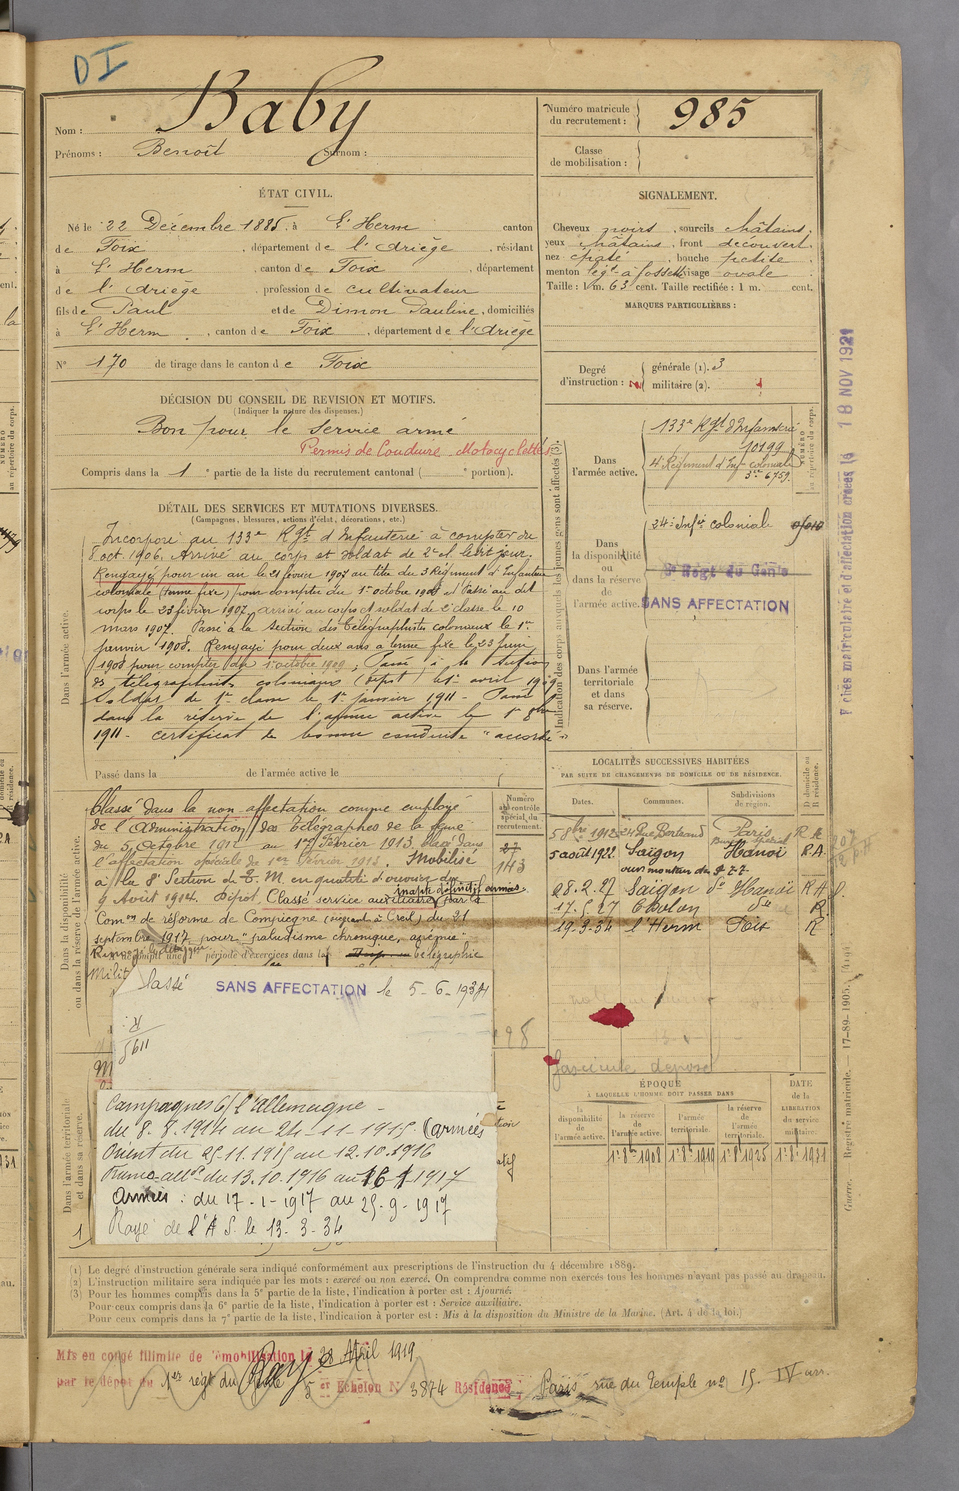 DI
Nom : Baby
Prénoms : Benoît Surnom :
Numéro matricule du recrutement : 985
Classe de mobilisation :
ÉTAT CIVIL.
Né le 22 Décembre 1885, à L'Herm canton
de Foix, département de l'Ariège, résidant
à L'Herm, canton de Foix, département
de l'Ariège, profession de cultivateur
fils de Paul et de Dimon Pauline, domiciliés
à L'Herm, canton de Foix, département de l'Ariège
N° 170 de tirage dans le canton de Foix
SIGNALEMENT.
Cheveux noirs, sourcils châtains,
yeux châtains, front découvert,
nez épaté, bouche petite,
menton légt à fossette visage ovale
Taille : 1 m. 63 cent. Taille rectifiée : 1 m. cent.
MARQUES PARTICULIÈRES :
Degré d'instruction :
générale (1). 3
militaire (2).
DÉCISION DU CONSEIL DE REVISION ET MOTIFS.
(Indiquer la nature des dispenses.)
Bon pour le service armé
Permis de Conduire Motocyclettes
Compris dans la 1 e partie de la liste du recrutement cantonal ( e portion).
DÉTAIL DES SERVICES ET MUTATIONS DIVERSES.
(Campagnes, blessures, actions d'éclat, décorations, etc.)
Dans l'armée active.
Incorporé au 133e Rgt d'Infanterie à compter du
8 oct. 1906. Arrivé au corps et soldat de 2e cl. le dit jour.
Rengagé pour un an le 21 février 1907 au titre du 3 Régiment d'Infanterie
coloniale (terme fixe) pour compter du 1er octobre 1908 et Passé au dit
corps le 23 février 1907, arrivé au corps et soldat de 2e classe le 10
mars 1907. Passé à la Section des Télégraphistes coloniaux le 1er
janvier 1908. Rengagé pour deux ans à terme fixe le 23 Juin
1908 pour compter du 1er octobre 1909; Passé à la Section
de télégraphistes coloniaux (dépôt) le 1er avril 1909
Soldat de 1re classe le 1er janvier 1911 - Passé
dans la réserve de l'armée active le 1er 8bre
1911 - certificat de bonne conduite "accordé"
Passé dans la de l'armée active le
Indication des corps auxquels les jeunes gens sont affectés (3).
NUMÉRO au répertoire du corps.
Dans l'armée active.
133e Rgt d'Infanterie
10199
4e Régiment d'Infie coloniale
6759.
Dans la disponibilité ou dans la réserve de l'armée active.
24e Infie coloniale
Regt du Génie
SANS AFFECTATION
Dans l'armée territoriale et dans sa réserve.
Fiches matriculaire et d'affectation créées le 18 NOV 1921
Dans la disponibilité ou dans la réserve de l'armée active.
Numéro au contrôle spécial du recrutement.
143
Classé dans la non affectation comme employé
de l'Administration des Télégraphes de la Seine
du 5 Octobre 1912 au 1er Février 1913, placé dans
l'affectation spéciale le 1er Février 1913. Mobilisé
à la 8e Section de T. M en qualité d'ouvrier du
9 Août 1914. Dépôt. Classé service auxiliaire par la
inapte définitif armée
Comon de réforme de Compiègne (siégeant à Creil) du 21
septembre 1917 pour "paludisme chronique, anémie"
période d'exercices dans la télégraphie
Milit
Classé SANS AFFECTATION le 5-6-1934
LOCALITÉS SUCCESSIVES HABITÉES
PAR SUITE DE CHANGEMENTS DE DOMICILE OU DE RÉSIDENCE.
Dates. Communes. Subdivisions de région. D domicile ou R résidence.
5 8bre 1912 Paris R
5 août 1922 Saïgon Hanoï R.A
28.2.27 Saïgon do Hanoï R
17.5.27 Cholon do R
19.3.34 l'Herm Foix R
fascicule déposé
ÉPOQUE
À LAQUELLE L'HOMME DOIT PASSER DANS
la disponibilité de l'armée active. la réserve de l'armée active. l'armée territoriale. la réserve de l'armée territoriale.
DATE de la LIBÉRATION du service militaire.
1er 8bre 1908 1er 8bre 1919 1er 8bre 1925 1er 8bre 1931
Dans l'armée territoriale et dans sa réserve.
Campagnes C/ l'Allemagne -
du 8.8.1914 au 24-11-1915 (armées
Orient du 25.11.1915 au 12.10.1916
du 13.10.1916 au 16 1 1917
Armées : du 17-1-1917 au 25-9-1917
Rayé de l'A S. le 13-3-34
Guerre. Registre matricule. — 17-89-1905.
(1) Le degré d'instruction générale sera indiqué conformément aux prescriptions de l'instruction du 4 décembre 1889.
(2) L'instruction militaire sera indiquée par les mots : exercé ou non exercé. On comprendra comme non exercés tous les hommes n'ayant pas passé au drapeau.
(3) Pour les hommes compris dans la 5e partie de la liste, l'indication à porter est : Ajourné.
Pour ceux compris dans la 6e partie de la liste, l'indication à porter est : Service auxiliaire.
Pour ceux compris dans la 7e partie de la liste, l'indication à porter est : Mis à la disposition du Ministre de la Marine. (Art. 4 de la loi.)
Mis en congé illimité de démobilisation le 28 Avril 1919
par le dépôt du 1er régt du Génie 5e Echelon N° 3874 Résidence Paris rue du Temple no 15. IV arr.
Rayé